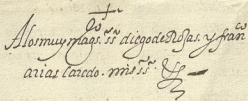 A los muy mags. ss. diego de Rojas. y fran.co
arias laredo. mis ss.